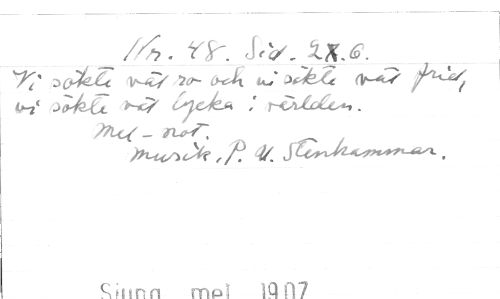 Nr. 48. Sid. 26.
Vi sökte vår ro och vi sökte vår frid,
vi sökte vår lycka i världen.
Mel-not.
Musik, P. U. Stenhammar.
Sjung mel 1907